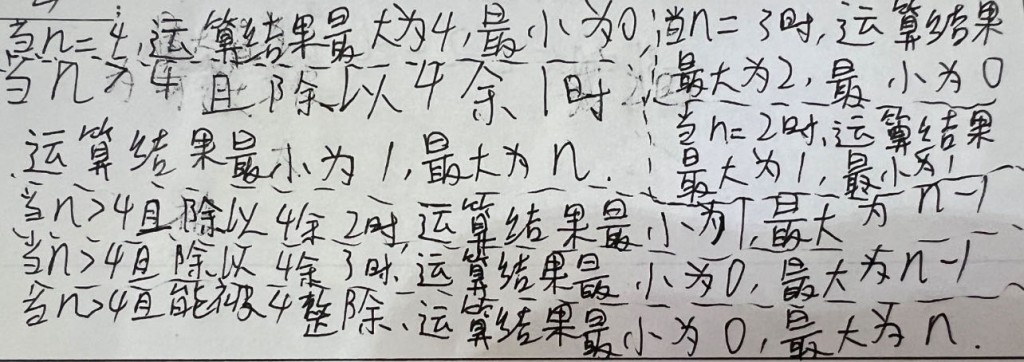 当n=4,运算结果最大为4,最小为0,当n=3时,运算结果
最大为2,最小为0
当n=2时,运算结果
最大为1,最小为1
当n为4且除以4余1时
运算结果最小为1,最大为n.
当n>4且除以4余2时,运算结果最小为1,最大为n-1
当n>4且除以4余3时,运算结果最小为0,最大为n-1
当n>4且能被4整除,运算结果最小为0,最大为n.